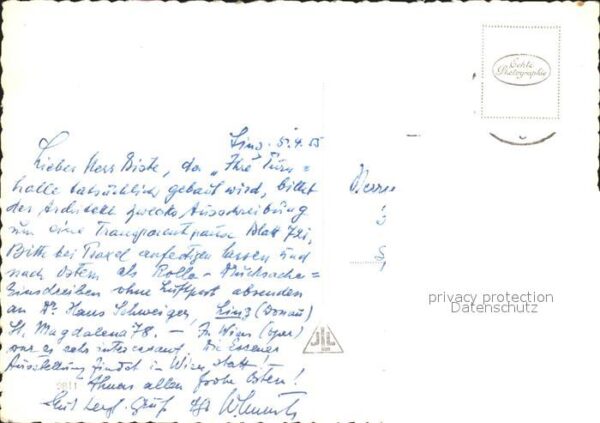 Linz 5.4.55
Lieber Herr Biste, da "Ihre Turn=
halle tatsächlich gebaut wird, bittet
der Architekt zwecks Ausschreibung
um eine Transparentpause Blatt 72i,
Bitte bei anfertigen lassen und
nach Ostern als Rolle - Drucksache =
Einschreiben ohne Luftpost absenden
an Dr. Hans Schweiger, Linz (Donau)
St. Magdalena 78. — In Wien (Oper)
war es sehr interessant. Die Essener
Ausstellung findet in Wien statt —
Ihnen allen frohe Ostern!
Mit Gruß
Herrn
Echte
Photographie
privacy protection
Datenschutz